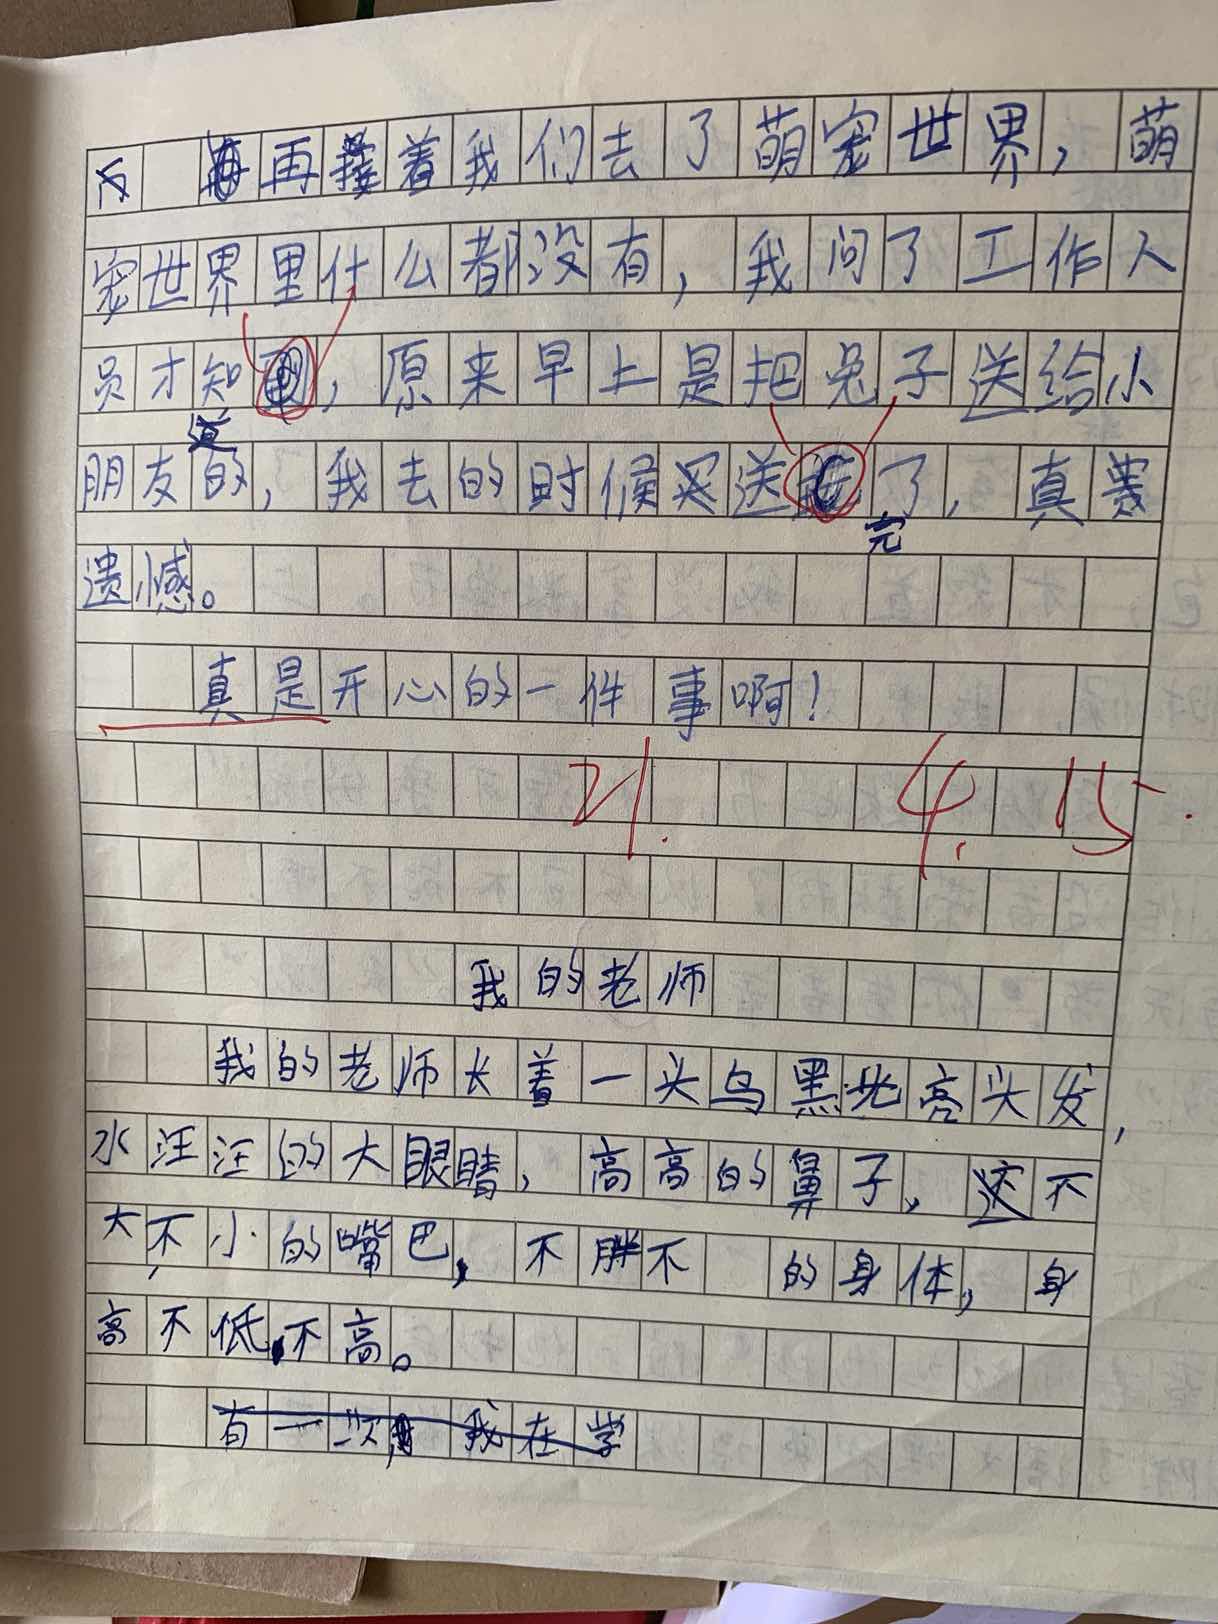 再接着我们去了萌宠世界，萌
宠世界里什么都没有，我问了工作人
员才知道，原来早上是把兔子送给小
朋友的，我去的时候送完了，真
遗憾。
真是开心的一件事啊！
21. 4.15.
我的老师
我的老师长着一头乌黑亮头发，
水汪汪的大眼睛，高高的鼻子，不
大不小的嘴巴，不胖不 的身体，身
高不低不高。
有一次，我在学